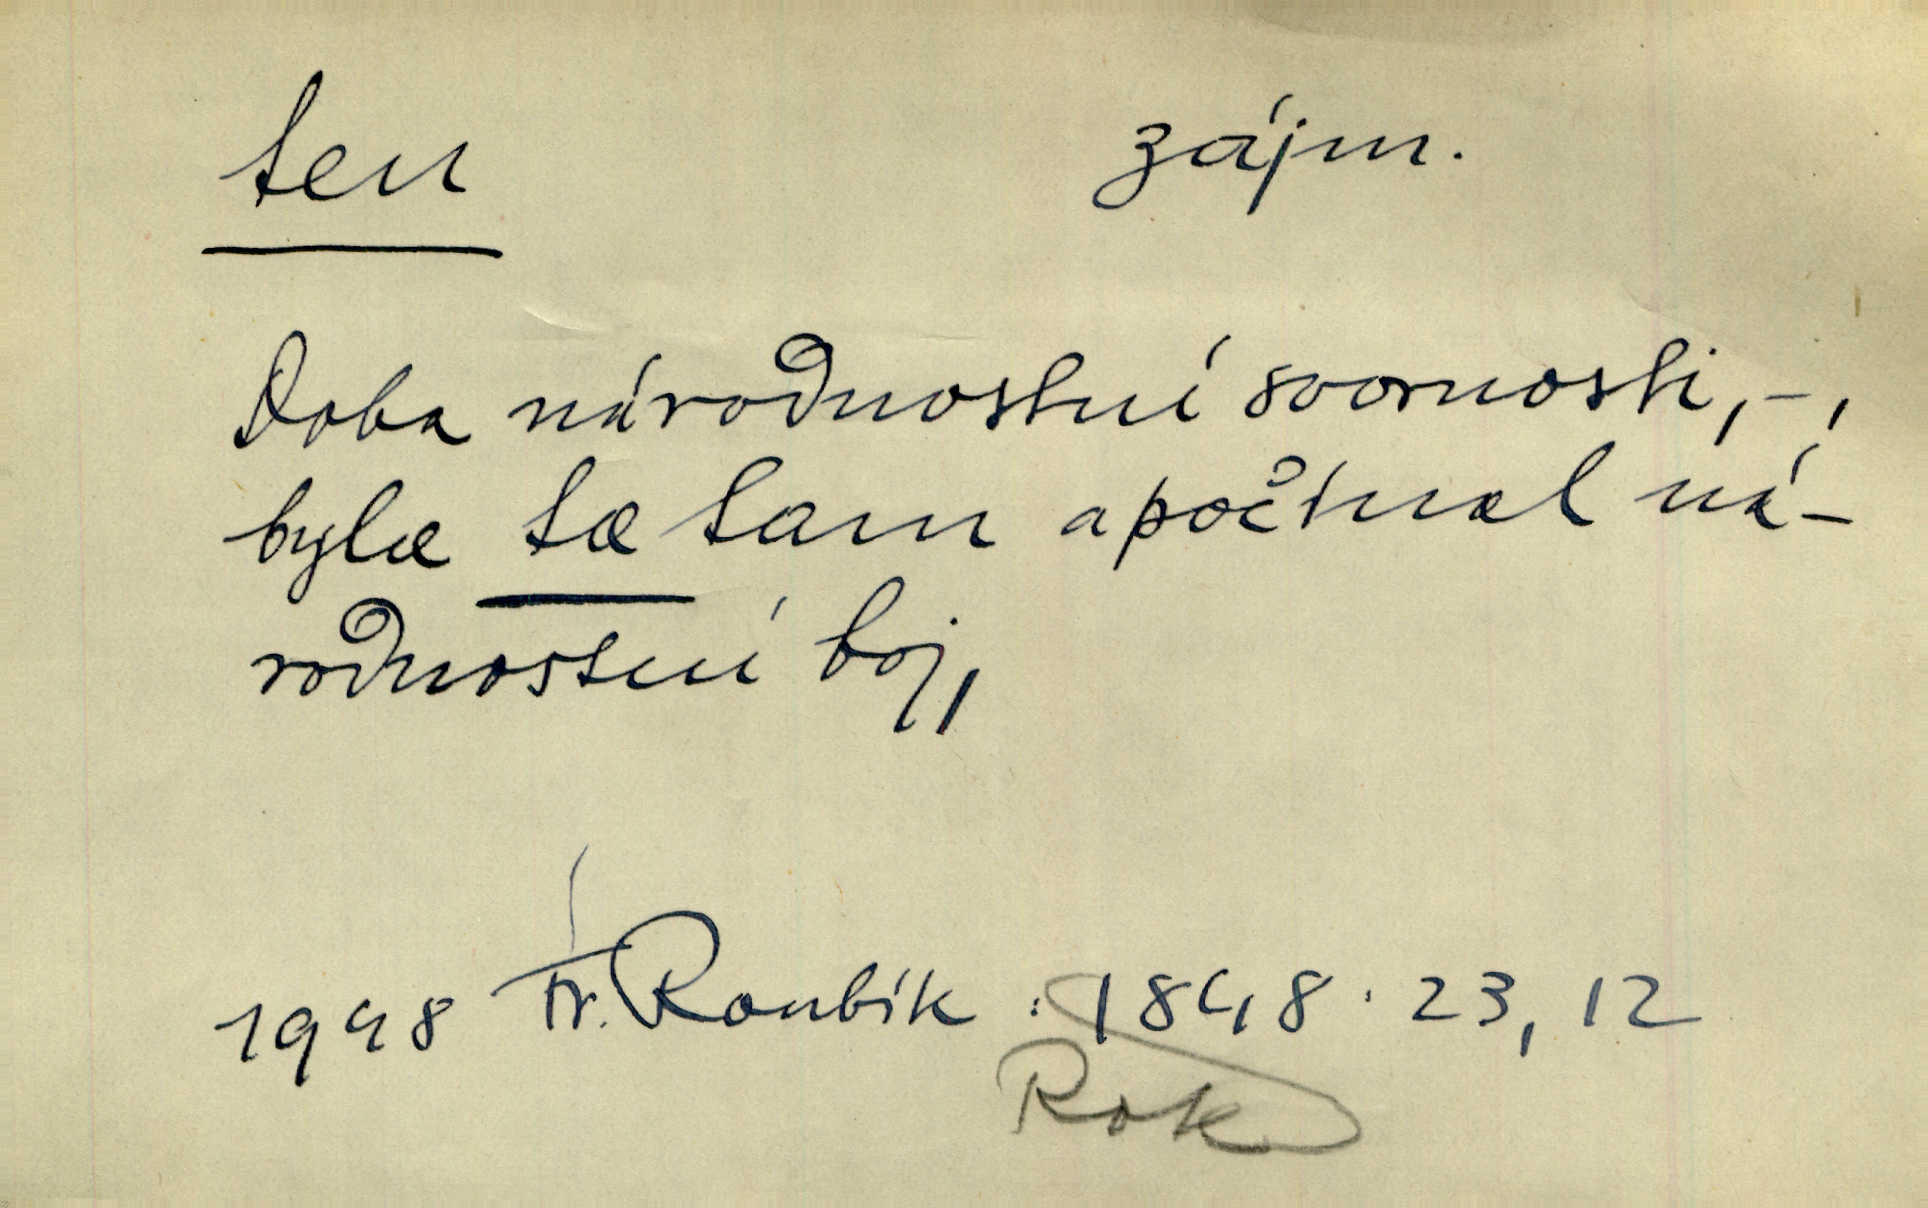 ten zájm.
Doba národnostní svornosti,-,
byla ta tam a počínal ná-
rodnostní boj,
1948 Fr. Roubík : 1848 . 23, 12
Rok